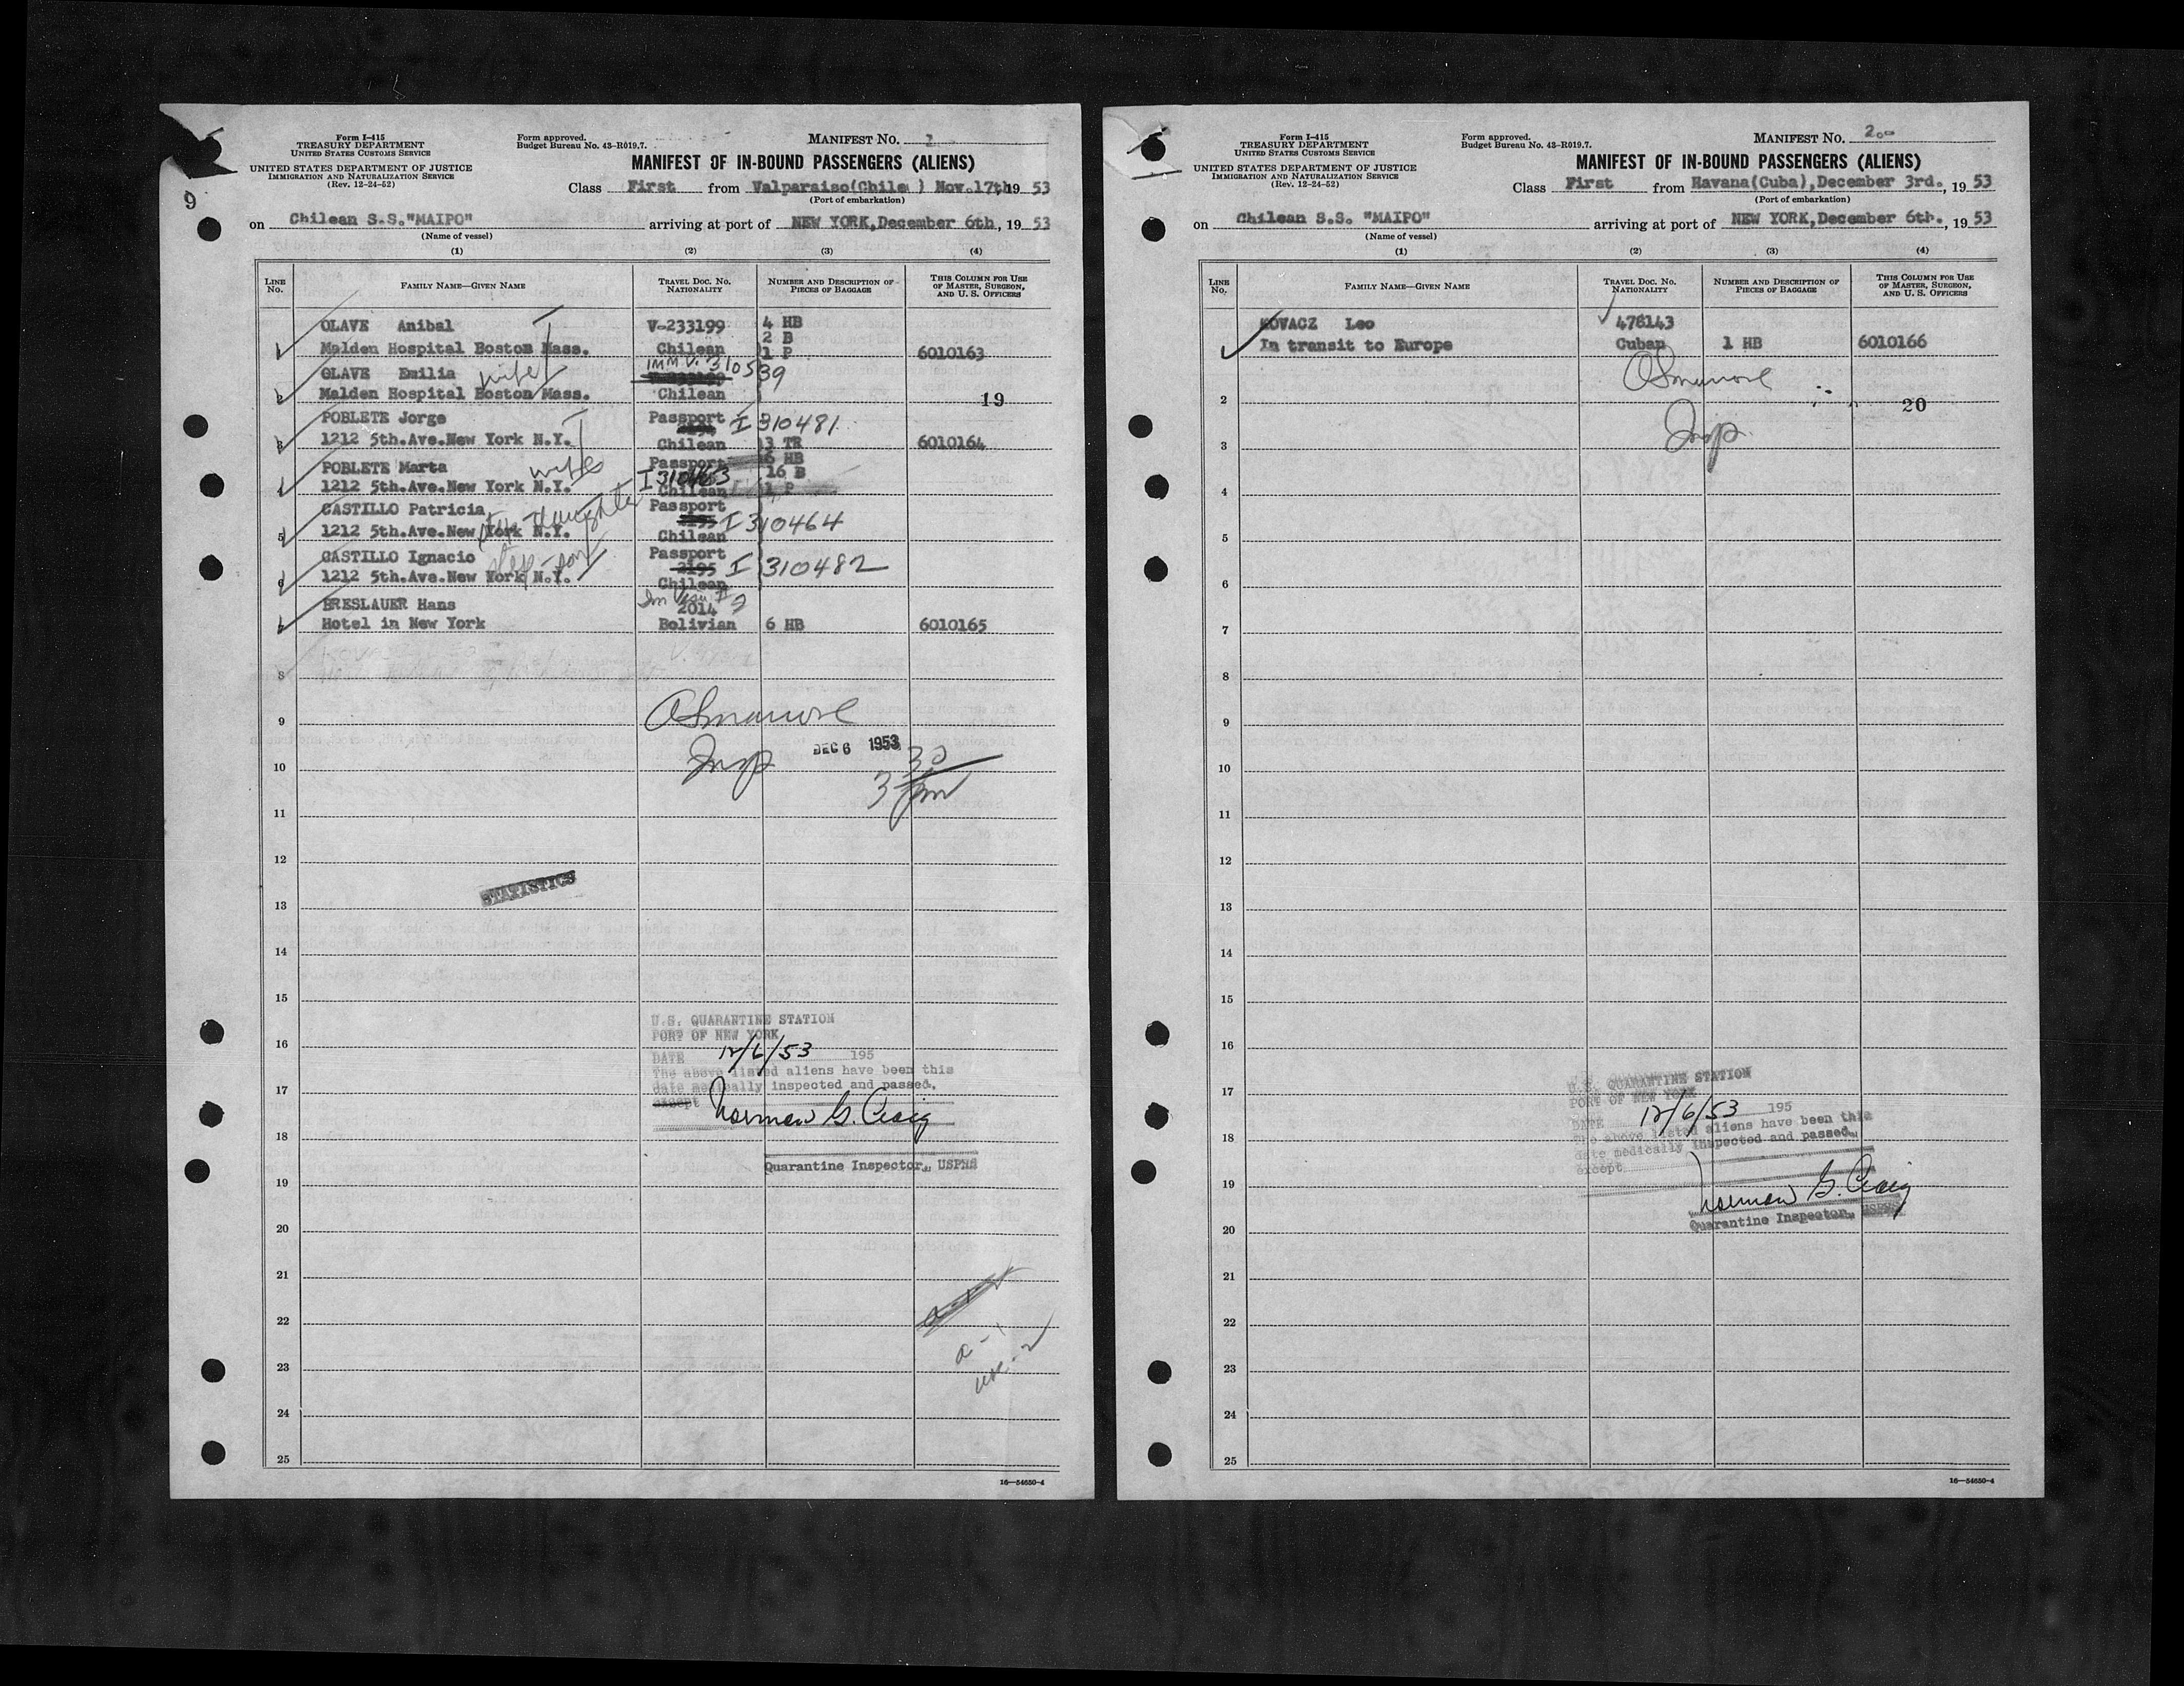 9
Form I-415
TREASURY DEPARTMENT
UNITED STATES CUSTOMS SERVICE
UNITED STATES DEPARTMENT OF JUSTICE
IMMIGRATION AND NATURALIZATION SERVICE
(Rev. 12-24-52)
Form approved.
Budget Bureau No. 43-R019.7.
MANIFEST No.
MANIFEST OF IN-BOUND PASSENGERS (ALIENS)
Class First from Valparaiso(Chile ) Nov.17th 19 53
(Port of embarkation)
on Chilean S.S."MAIPO" arriving at port of NEW YORK,December 6th, 19 53
(Name of vessel)
(1) (2) (3) (4)
LINE No. FAMILY NAME—GIVEN NAME TRAVEL DOC. NO. NATIONALITY NUMBER AND DESCRIPTION OF PIECES OF BAGGAGE THIS COLUMN FOR USE OF MASTER, SURGEON, AND U. S. OFFICERS
OLAVE Anibal V-233199 4 HB
2 B
1 Malden Hospital Boston Mass. Chilean 1 P 6010163
OLAVE Emilia wife IMM V. 310539
2 Malden Hospital Boston Mass. Chilean 19
POBLETE Jorge Passport I 310481
3 1212 5th.Ave.New York N.Y. Chilean 3 TR 6010164
POBLETE Marta wife Passport 6 HB
I 310463 16 B
4 1212 5th.Ave.New York N.Y. Chilean 1 P
CASTILLO Patricia step-daughter Passport
2195 I 310464
5 1212 5th.Ave.New York N.Y. Chilean
CASTILLO Ignacio step-son Passport
2195 I 310482
6 1212 5th.Ave.New York N.Y. Chilean
BRESLAUER Hans 2014
7 Hotel in New York Bolivian 6 HB 6010165
8
9
Insp DEC 6 1953
10 3 30 pm
11
12
STATISTICS
13
14
15
U.S. QUARANTINE STATION
PORT OF NEW YORK
16
DATE 12/6/53 195
The above listed aliens have been this
17 date medically inspected and passed,
except Norman G. Craig
18
Quarantine Inspector, USPHS
19
20
21
22
23
24
25
16—54650-4
Form I-415
TREASURY DEPARTMENT
UNITED STATES CUSTOMS SERVICE
UNITED STATES DEPARTMENT OF JUSTICE
IMMIGRATION AND NATURALIZATION SERVICE
(Rev. 12-24-52)
Form approved.
Budget Bureau No. 43-R019.7.
MANIFEST No. 2.-
MANIFEST OF IN-BOUND PASSENGERS (ALIENS)
Class First from Havana(Cuba),December 3rd., 19 53
(Port of embarkation)
on Chilean S.S. "MAIPO" arriving at port of NEW YORK,December 6th., 19 53
(Name of vessel)
(1) (2) (3) (4)
LINE No. FAMILY NAME—GIVEN NAME TRAVEL DOC. NO. NATIONALITY NUMBER AND DESCRIPTION OF PIECES OF BAGGAGE THIS COLUMN FOR USE OF MASTER, SURGEON, AND U. S. OFFICERS
KOVACZ Leo 478143
In transit to Europe Cuban 1 HB 6010166
2 20
Insp
3
4
5
6
7
8
9
10
11
12
13
14
15
16
17
U.S. QUARANTINE STATION
PORT OF NEW YORK
DATE 12/6/53 195
18 The above listed aliens have been this
date medically inspected and passed,
except
19 Norman G. Craig
20 Quarantine Inspector, USPHS
21
22
23
24
25
16—54650-4